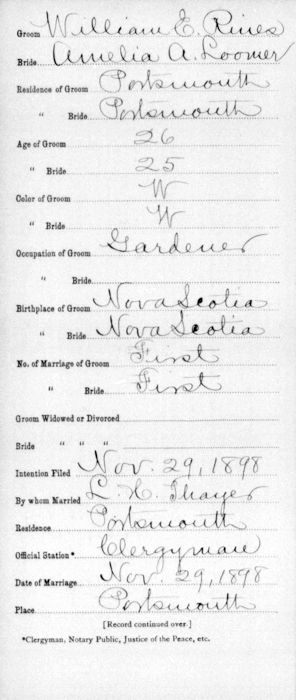 Groom William E. Rines
Bride Amelia A. Loomer
Residence of Groom Portsmouth
" Bride Portsmouth
Age of Groom 26
" Bride 25
Color of Groom W
" Bride W
Occupation of Groom Gardener
" Bride
Birthplace of Groom Nova Scotia
" Bride Nova Scotia
No. of Marriage of Groom First
" Bride First
Groom Widowed or Divorced
Bride " " "
Intention Filed Nov. 29, 1898
By whom Married L. H. Thayer
Residence Portsmouth
Official Station* Clergyman
Date of Marriage Nov. 29, 1898
Place Portsmouth
[Record continued over.]
*Clergyman, Notary Public, Justice of the Peace, etc.